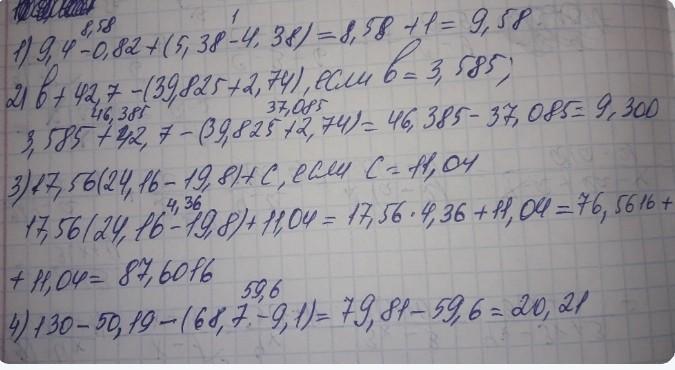 8,58 1
1) 9,4-0,82+(5,38-4,38)=8,58+1=9,58.
2) в+42,7-(39,825+2,74), если в=3,585;
46,385 37,085
3,585+42,7-(39,825+2,74)=46,385-37,085=9,300
3) 17,56(24,16-19,8)+с, если с=11,04
4,36
17,56(24,16-19,8)+11,04=17,56·4,36+11,04=76,5616+
+11,04= 87,6016
59,6
4) 130-50,19-(68,7-9,1)=79,81-59,6=20,21